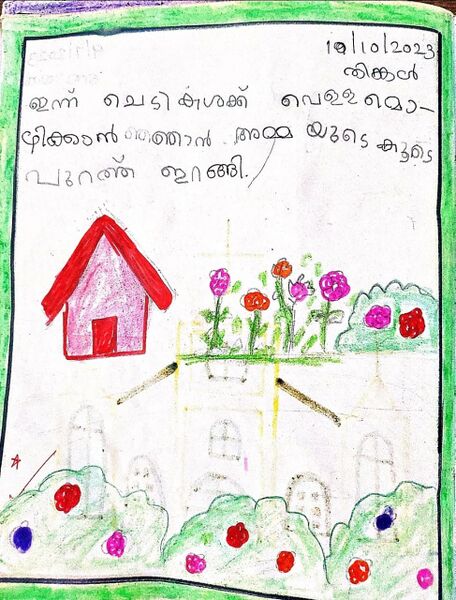 19/10/2023
തിങ്കൾ
ഇന്ന് ചെടികൾക്ക് വെള്ളമൊ-
ഴിക്കാൻ ഞാൻ അമ്മയുടെ കൂടെ
പുറത്ത് ഇറങ്ങി.